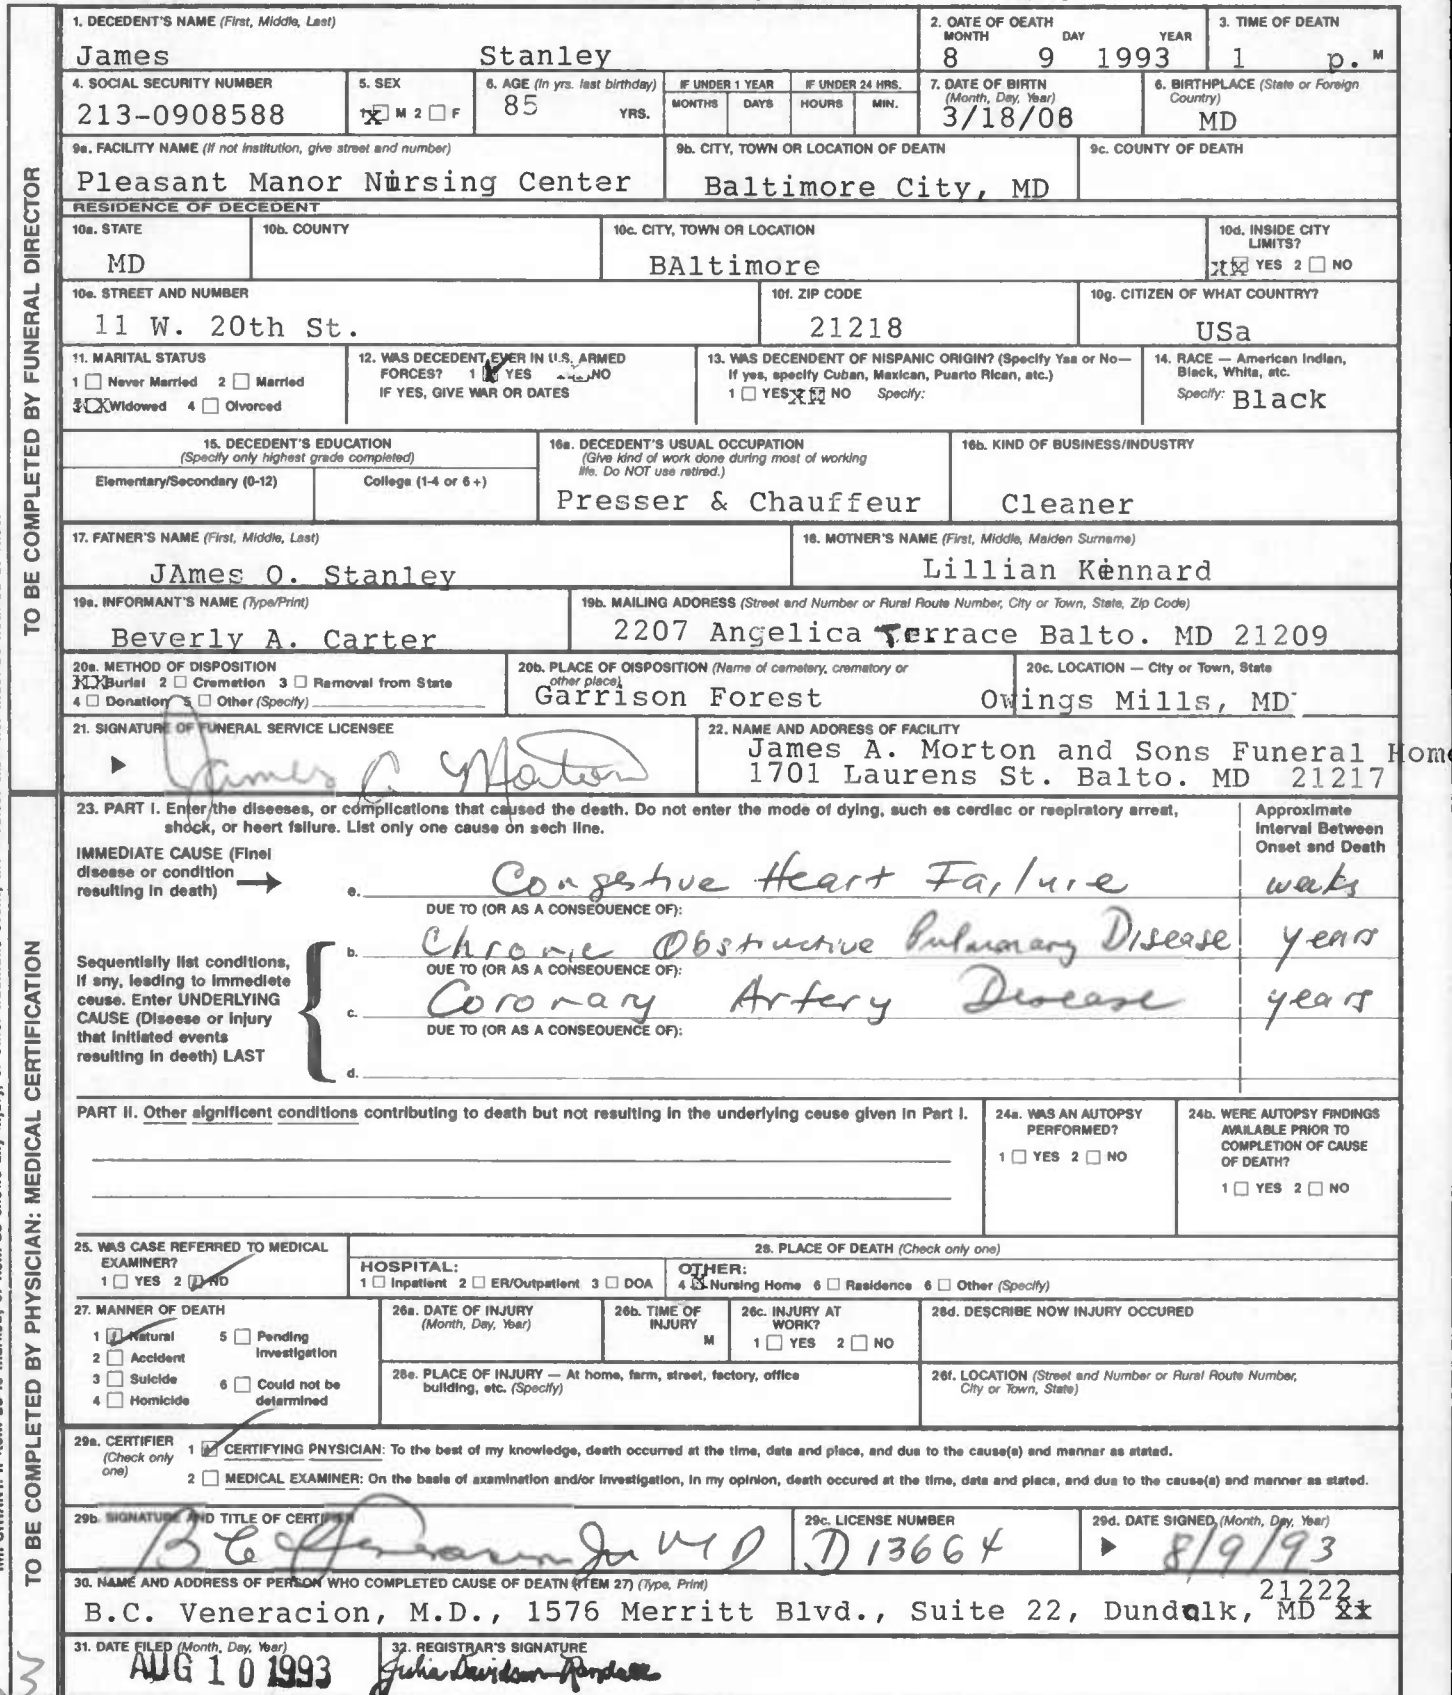 1. DECEDENT'S NAME (First, Middle, Last)
James Stanley
2. DATE OF DEATH
MONTH DAY YEAR
8 9 1993
3. TIME OF DEATH
1 p. M
4. SOCIAL SECURITY NUMBER
213-0908588
5. SEX
1 M 2 F
6. AGE (In yrs. last birthday)
85 YRS.
IF UNDER 1 YEAR
MONTHS DAYS
IF UNDER 24 HRS.
HOURS MIN.
7. DATE OF BIRTH
(Month, Day, Year)
3/18/08
6. BIRTHPLACE (State or Foreign
Country)
MD
9a. FACILITY NAME (If not institution, give street and number)
Pleasant Manor Nursing Center
9b. CITY, TOWN OR LOCATION OF DEATH
Baltimore City, MD
9c. COUNTY OF DEATH
RESIDENCE OF DECEDENT
10a. STATE
MD
10b. COUNTY
10c. CITY, TOWN OR LOCATION
BAltimore
10d. INSIDE CITY
LIMITS?
YES 2 NO
10e. STREET AND NUMBER
11 W. 20th St.
10f. ZIP CODE
21218
10g. CITIZEN OF WHAT COUNTRY?
USa
11. MARITAL STATUS
1 Never Married 2 Married
Widowed 4 Divorced
12. WAS DECEDENT EVER IN U.S. ARMED
FORCES? 1 YES NO
IF YES, GIVE WAR OR DATES
13. WAS DECENDENT OF NISPANIC ORIGIN? (Specify Yes or No—
If yes, specify Cuban, Mexican, Puerto Rican, etc.)
1 YES XX NO Specify:
14. RACE — American Indian,
Black, White, etc.
Specify: Black
15. DECEDENT'S EDUCATION
(Specify only highest grade completed)
Elementary/Secondary (0-12) College (1-4 or 6+)
16a. DECEDENT'S USUAL OCCUPATION
(Give kind of work done during most of working
life. Do NOT use retired.)
Presser & Chauffeur
16b. KIND OF BUSINESS/INDUSTRY
Cleaner
17. FATNER'S NAME (First, Middle, Last)
JAmes O. Stanley
18. MOTNER'S NAME (First, Middle, Maiden Surname)
Lillian Kennard
19a. INFORMANT'S NAME (Type/Print)
Beverly A. Carter
19b. MAILING ADDRESS (Street and Number or Rural Route Number, City or Town, State, Zip Code)
2207 Angelica Terrace Balto. MD 21209
20a. METHOD OF DISPOSITION
XX Burial 2 Cremation 3 Removal from State
4 Donation 5 Other (Specify)
20b. PLACE OF DISPOSITION (Name of cemetery, crematory or
other place)
Garrison Forest
20c. LOCATION — City or Town, State
Owings Mills, MD
21. SIGNATURE OF FUNERAL SERVICE LICENSEE
James A. Morton
22. NAME AND ADDRESS OF FACILITY
James A. Morton and Sons Funeral Home
1701 Laurens St. Balto. MD 21217
TO BE COMPLETED BY FUNERAL DIRECTOR
23. PART I. Enter the diseases, or complications that caused the death. Do not enter the mode of dying, such as cardiac or respiratory arrest,
shock, or heart failure. List only one cause on each line.
Approximate
Interval Between
Onset and Death
IMMEDIATE CAUSE (Final
disease or condition
resulting in death)
a. Congestive Heart Failure weeks
DUE TO (OR AS A CONSEQUENCE OF):
b. Chronic Obstructive Pulmonary Disease years
DUE TO (OR AS A CONSEQUENCE OF):
c. Coronary Artery Disease years
DUE TO (OR AS A CONSEQUENCE OF):
d.
Sequentially list conditions,
if any, leading to immediate
cause. Enter UNDERLYING
CAUSE (Disease or injury
that initiated events
resulting in death) LAST
PART II. Other significant conditions contributing to death but not resulting in the underlying cause given in Part I.
24a. WAS AN AUTOPSY
PERFORMED?
1 YES 2 NO
24b. WERE AUTOPSY FINDINGS
AVAILABLE PRIOR TO
COMPLETION OF CAUSE
OF DEATH?
1 YES 2 NO
25. WAS CASE REFERRED TO MEDICAL
EXAMINER?
1 YES 2 NO
26. PLACE OF DEATH (Check only one)
HOSPITAL:
1 Inpatient 2 ER/Outpatient 3 DOA
OTHER:
4 Nursing Home 6 Residence 6 Other (Specify)
27. MANNER OF DEATH
1 Natural 5 Pending
Investigation
2 Accident
3 Suicide 6 Could not be
4 Homicide determined
26a. DATE OF INJURY
(Month, Day, Year)
26b. TIME OF
INJURY
M
26c. INJURY AT
WORK?
1 YES 2 NO
28d. DESCRIBE NOW INJURY OCCURED
28e. PLACE OF INJURY — At home, farm, street, factory, office
building, etc. (Specify)
26f. LOCATION (Street and Number or Rural Route Number,
City or Town, State)
29a. CERTIFIER
(Check only
one)
1 CERTIFYING PNYSICIAN: To the best of my knowledge, death occurred at the time, date and place, and due to the cause(s) and manner as stated.
2 MEDICAL EXAMINER: On the basis of examination and/or investigation, in my opinion, death occured at the time, date and place, and due to the cause(s) and manner as stated.
29b. SIGNATURE AND TITLE OF CERTIFIER
B C Veneracion Jr MD
29c. LICENSE NUMBER
D13664
29d. DATE SIGNED (Month, Day, Year)
8/9/93
30. NAME AND ADDRESS OF PERSON WHO COMPLETED CAUSE OF DEATN (ITEM 27) (Type, Print)
21222
B.C. Veneracion, M.D., 1576 Merritt Blvd., Suite 22, Dundalk, MD
31. DATE FILED (Month, Day, Year)
AUG 10 1993
32. REGISTRAR'S SIGNATURE
Julia Davidson-Randall
TO BE COMPLETED BY PHYSICIAN: MEDICAL CERTIFICATION
3